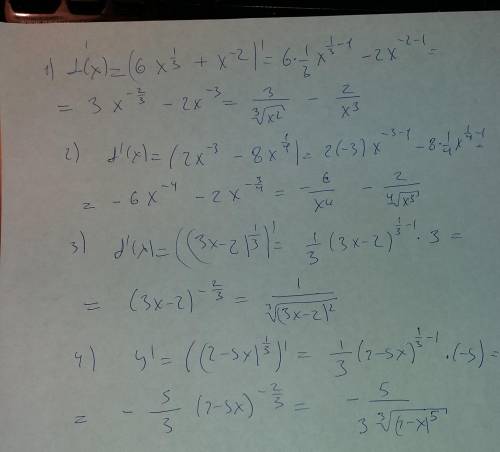 1) f'(x) = (6x^{1/3} + x^{-2})' = 6·1/3 x^{1/3-1} - 2x^{-2-1} =
= 3x^{-2/3} - 2x^{-3} = 3/∛(x²) - 2/x³
2) f'(x) = (2x^{-3} - 8x^{1/4})' = 2(-3)x^{-3-1} - 8·1/4 x^{1/4-1} =
= -6x^{-4} - 2x^{-3/4} = -6/x⁴ - 2/∜(x³)
3) f'(x) = ((3x-2)^{1/3})' = 1/3 (3x-2)^{1/3-1} · 3 =
= (3x-2)^{-2/3} = 1/∛((3x-2)²)
4) y' = ((7-5x)^{1/3})' = 1/3 (7-5x)^{1/3-1} · (-5) =
= -5/3 (7-5x)^{-2/3} = -5/(3∛((7-x)^5))